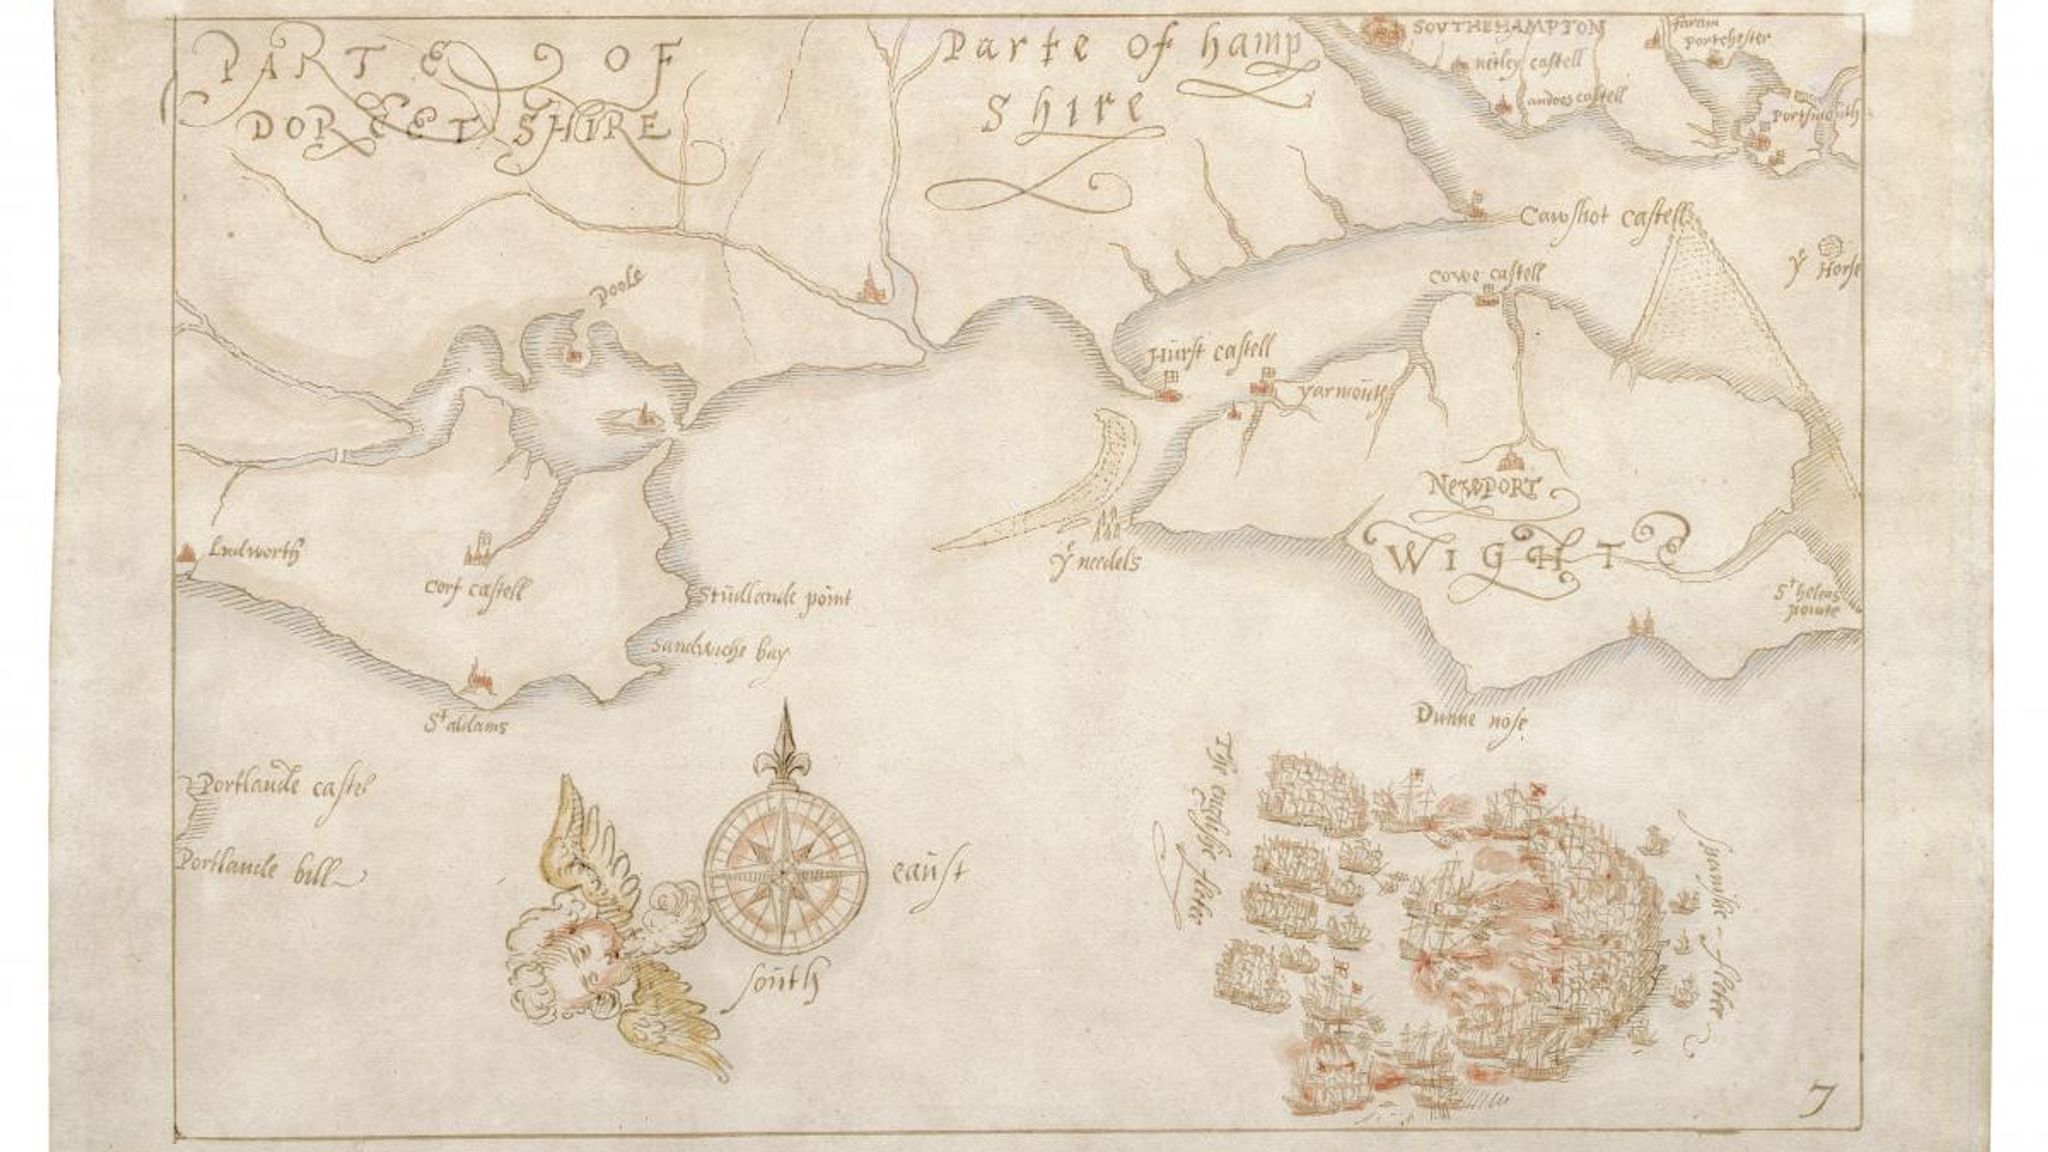 PARTE OF
DORCETSHIRE
Parte of hamp
Shire
SOVTHEHAMPTON
netley castell
andoos castell
faram
portchester
Portsmouth
Cawshot castell
yͤ Horse
Cowe castell
Poole
Hurst castell
yarmouth
NEWPORT
WIGHTE
yͤ needels
Sᵗ helens
pointe
Lulworth
corf castell
Studlande point
Sandwiche bay
Sᵗ aldams
Dunne nose
Portlande castel
Portlande bill
eaust
south
The englishe fleete
Spanishe fleete
7